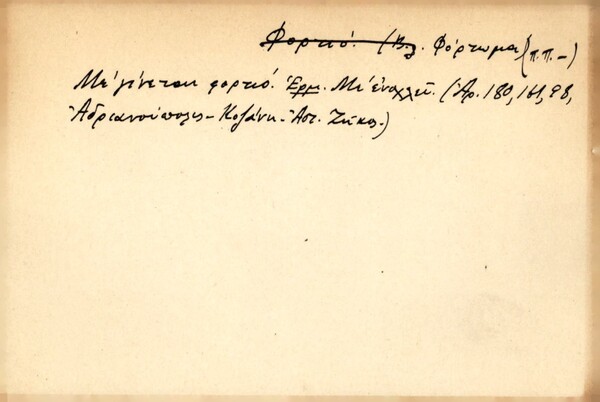 Φορτιό. (Βλ. Φόρτωμα) (π.π.-)
Μέ γίνεται φορτιό. Ἑρμ. Μέ ἐνοχλεῖ. (Ἀρ. 180, 161, 98,
Ἀδριανούπολις - Κοζάνη - Ἀστ. Ζήκος.)